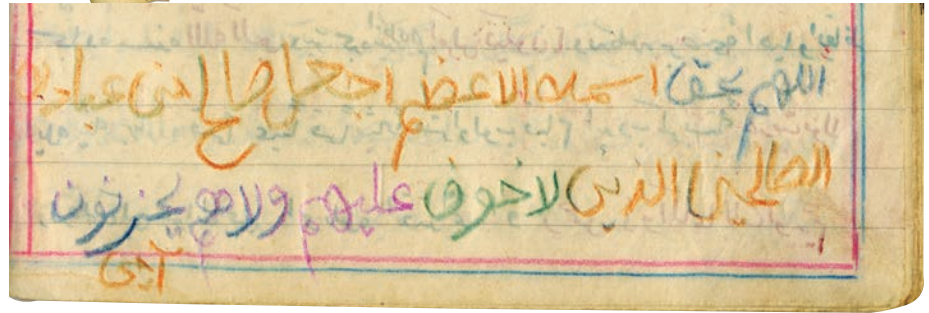 اللهم بحق اسمك الاعظم اجعل صالح من عبادك
الصالحين الذين لا خوف عليهم ولا هم يحزنون
آمين